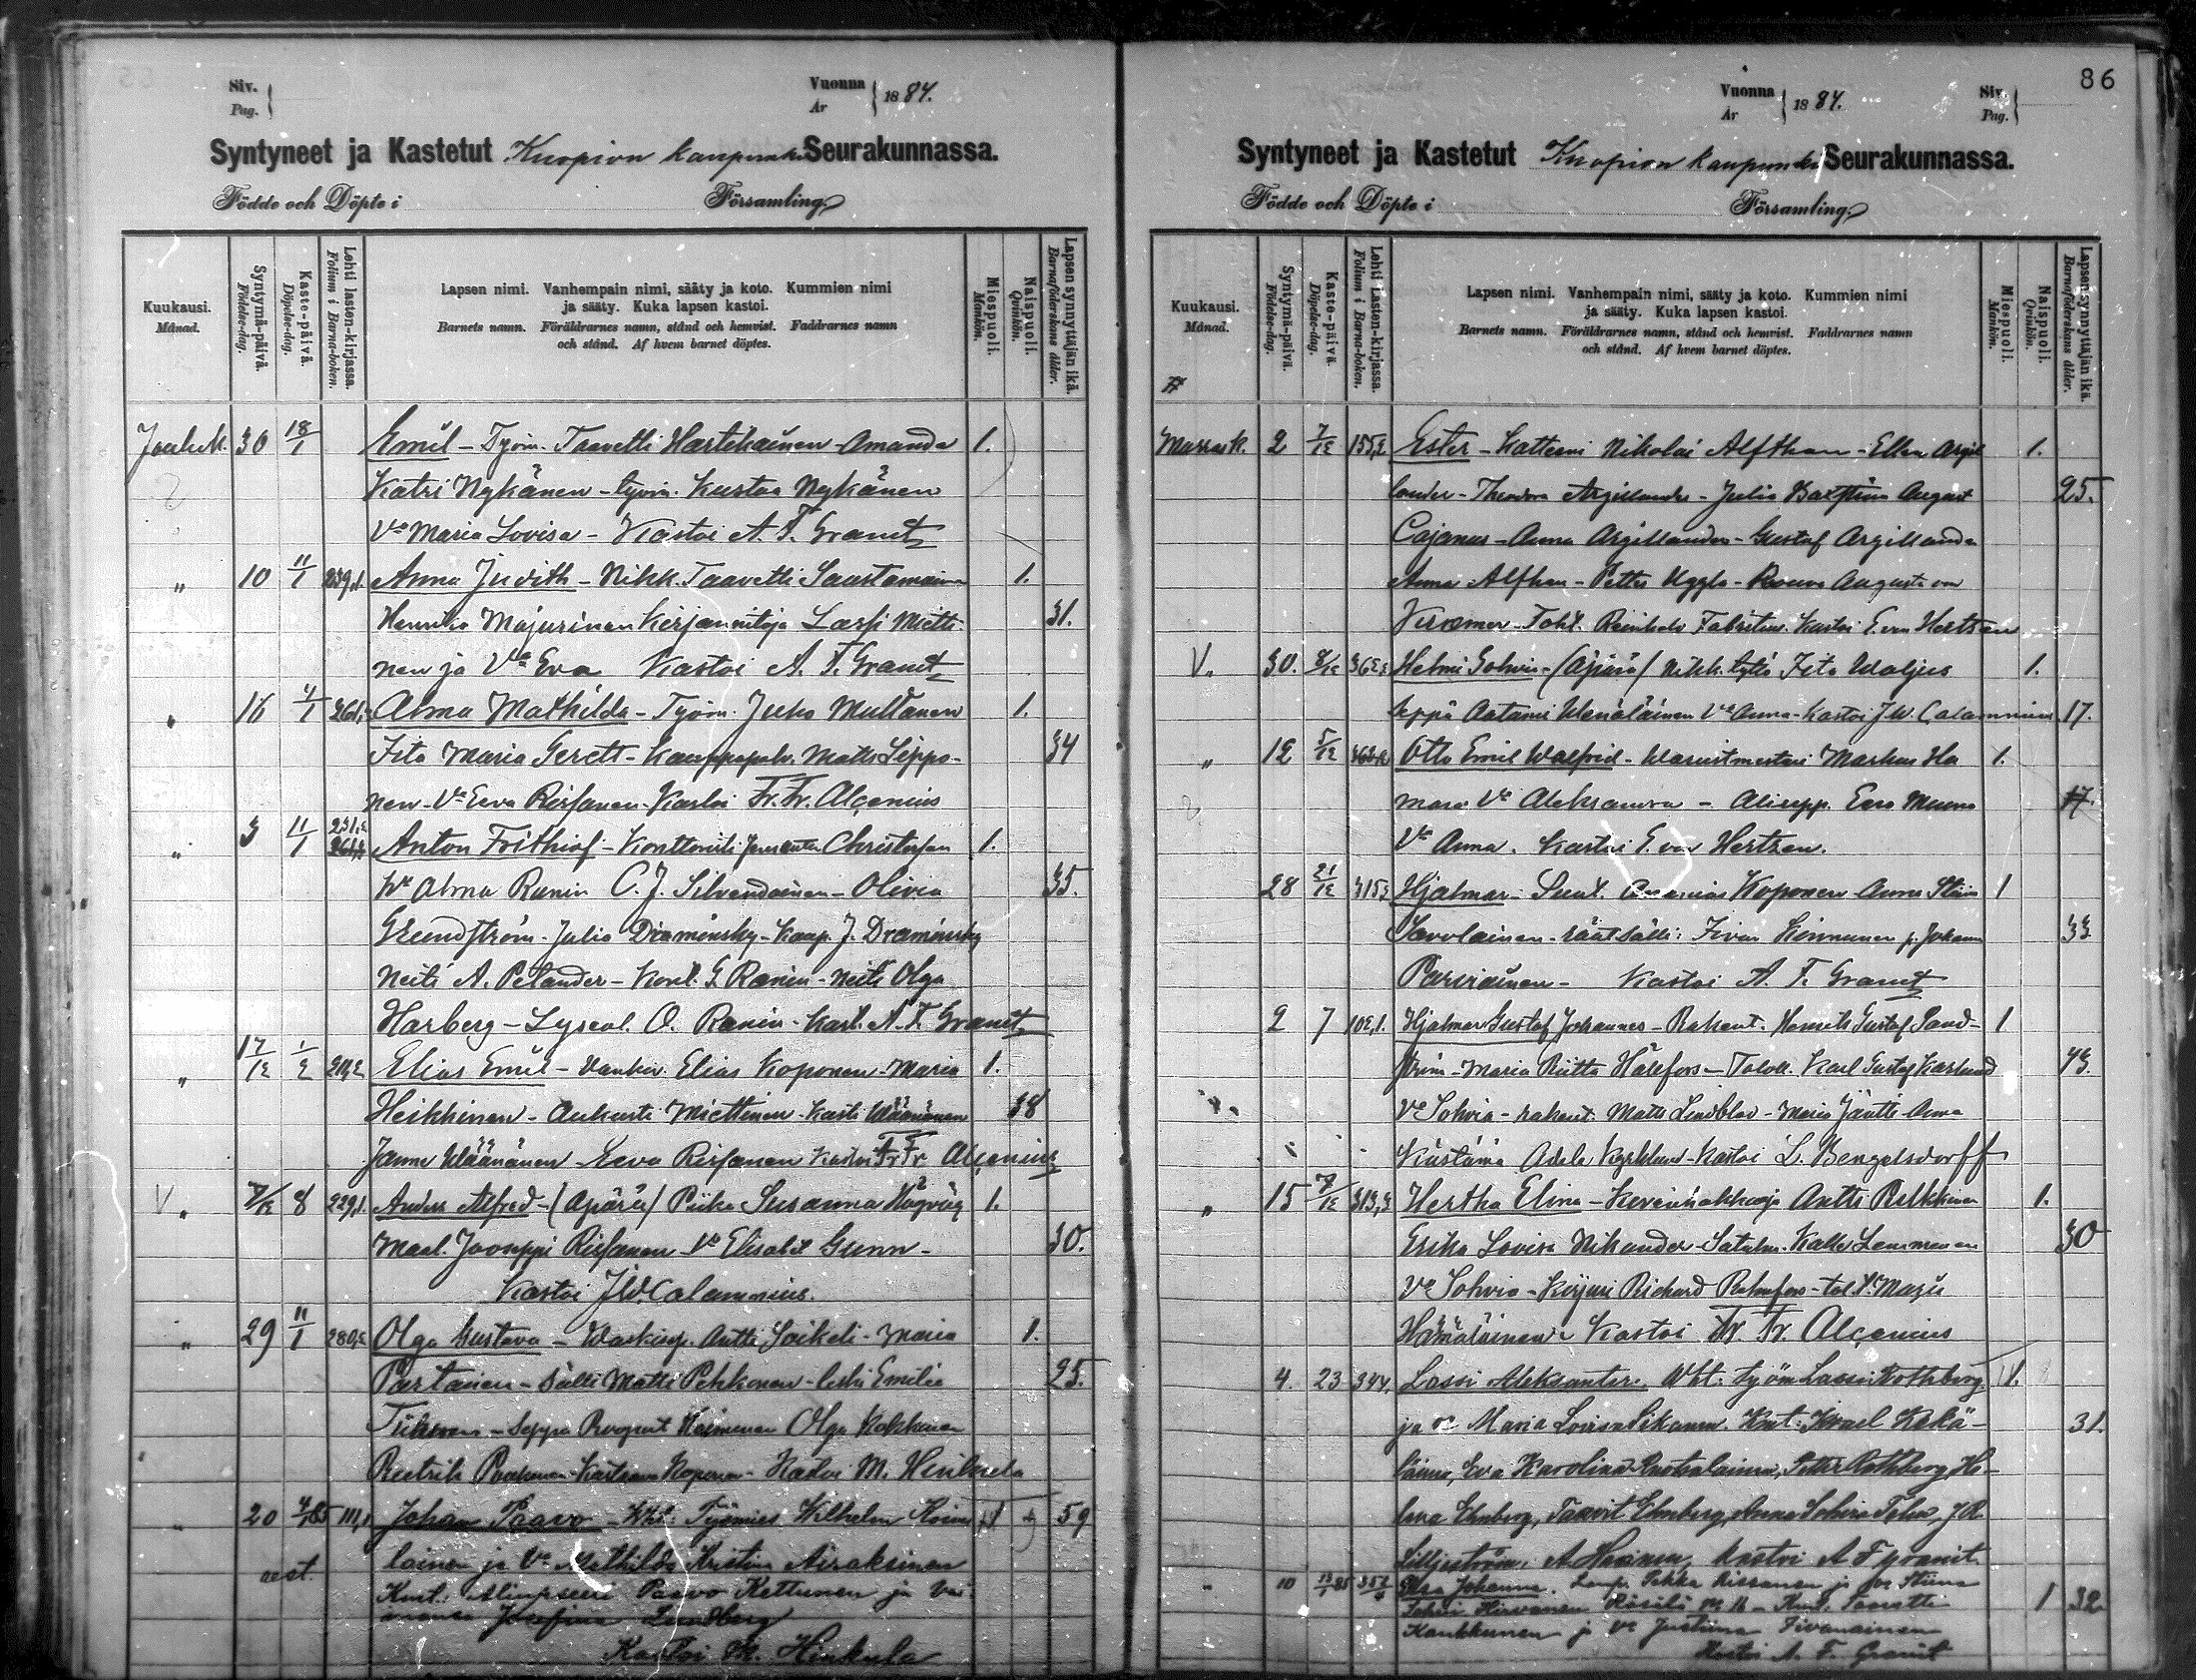 Siv.
Pag.
Vuonna
År
1884.
Syntyneet ja Kastetut Kuopion kaupunki Seurakunnassa.
Födde och Döpte i Församling
Kuukausi.
Månad.
Syntymä-päivä.
Födelse-dag.
Kaste-päivä.
Döpelse-dag.
Lehti lasten-kirjassa.
Folium i Barna-boken.
Lapsen nimi. Vanhempain nimi, sääty ja koto. Kummien nimi
ja sääty. Kuka lapsen kastoi.
Barnets namn. Föräldrarnes namn, stånd och hemvist. Faddrarnes namn
och stånd. Af hvem barnet döptes.
Miespuoli.
Mankön.
Naispuoli.
Qvinkön.
Lapsen synnyttäjän ikä.
Barnaföderskans ålder.
Jouluk. 30 18/1 Emil - Työm. Taavetti Hartikainen Amanda 1.
Katri Nykänen - työm. Kustaa Nykänen
Vo Maria Lovisa - Kastoi A. F. Granit
" 10 11/1 239,1 Anna Judith - Nikk. Taavetti 1.
Henrika Majurinen Kirjannitoja Lassi Mietti 31.
nen ja Vo Eva Kastoi A. F. Granit
" 16 4/1 Alma Mathilda - Työm. Juho Multanen 1.
Fita Maria Gerett - Kauppapalv. Matts Seppo- 34
nen - Vo Eeva Rissanen - Kastoi Fr. Fr. Alçenius
" 3 11/1 231,2 Anton Frithiof - Konttoristi Christersen 1.
Vo Alma Ranin C. J. Silvendoinen - Olivia 35.
Grundström - Julia Draminsky - Kaup. J. Draminsky
Neiti A. Pelander - Kont. G. Ranin - Neiti Olga
Harberg - Lyseol. O. Ranin - Kast. A. F. Granit
" 17/12 1/2 211,2 Elias Emil - Vankiv. Elias Koponen - Maria 1.
Heikkinen - Aukusti Miettinen - Väänänen 38
Janne Väänänen - Eeva Rissanen Kastoi Fr Fr Alçenius
V " 8 229,1 Anders Alfred - (Äpärä) Piika Susanna 1.
Maal. Jooseppi Rissanen - Vo Elisabet Gunn - 30.
Kastoi J.W. Calamnius.
" 29 11/1 280,2 Olga Gustava - Vaskisep. Antti Soikeli - Maria 1.
Partanen - Sälli Matti Pehkonen - leski Emilie 25.
Tikkanen - Seppä Olga Kokkinen
Kastoi M. Hinkula
" 20 4/1 85 111,1 Johan Paavo - Vht: Työmies Wilhelm 59
lainen ja Vo Mathilda Kristina Airaksinen
aest.
Kmt: Aliupseeri Paavo Kettunen ja Vai
monsa Josefina Lundberg
Kastoi M. Hinkula
86
Vuonna
År
1884.
Siv.
Pag.
Syntyneet ja Kastetut Kuopion kaupunki Seurakunnassa.
Födde och Döpte i Församling
Kuukausi.
Månad.
Syntymä-päivä.
Födelse-dag.
Kaste-päivä.
Döpelse-dag.
Lehti Lasten-kirjassa.
Folium i Barna-boken.
Lapsen nimi. Vanhempain nimi, sääty ja koto. Kummien nimi
ja sääty. Kuka lapsen kastoi.
Barnets namn. Föräldrarnes namn, stånd och hemvist. Faddrarnes namn
och stånd. Af hvem barnet döptes.
Miespuoli.
Mankön.
Naispuoli.
Qvinkön.
Lapsen synnyttäjän ikä.
Barnaföderskans ålder.
Marrask. 2 7/12 155,2 Ester - Nikolai Alfthan - Ellen Argil 1.
lander - Theodora Argillander - Julia August 25.
Cajanus - Anna Argillander - Gustaf Argillander
Anna Alfthan - Petter Uggla - Rouva Augusta von
Kræmer - Toht. Reinhold Fabritius. Kastoi E. von Hertzen
V. 30. Helmi Sohvia - (Äpärä) Nikk. tyttö Fita Valjus 1.
Seppä Aatami Venäläinen Vo Anna - Kastoi J.W. Calamnius 17.
" 12 5/12 Otto Emil Walfrid - Markus Ha 1.
Vo Aleksandra - Aliupp. Eero
Vo Anna. Kastoi E. von Hertzen.
28 21/12 315,3 Hjalmar - Koponen Anna Stiin 1
Savolainen - räät sälli: Iivar Kinnunen j. Johanna 33
Parviainen - Kastoi A. F. Granit
2 7 102,1. Hjalmar Gustaf Johannes - Rakent. Henrik Gustaf Sand- 1
ström - Maria Riitta Hällfors - Talok. Karl Gustaf Karlund 43.
Vo Sohvia - rakent. Matts Lindblad - Maria Jäntti Anna
Adele - Kastoi L. Bengelsdorff
" 15 7/12 313,3 Hertha Elina - Kivenhakkaaja Antti Pelkkinen 1.
Erika Lovisa Nikander - Kalle Lemminen 30
Vo Sohvia - Kirjuri Richard
Hämäläinen - Kastoi Fr. Fr. Alçenius
4. 23 344, Lassi Aleksanteri. Vht: työm Lassi Rothberg 1.
ja vo Maria Lovisa Pikanen. Kmt: Israel Kekä- 31.
läinen, Eva Karolina Petter Rothberg He-
lena Ehnberg, Taavit Ehnberg, Anna Sohvia J R
Lilljeström, A. Kastoi A F Granit
" 10 13/1 85 Johanna. Lamp. Pekka Rissanen ja vo Stiina
Sohvi Hirvonen Kmt. Taavetti 1 32.
Kaukkunen ja vo Justiina
Kastoi A. F. Granit